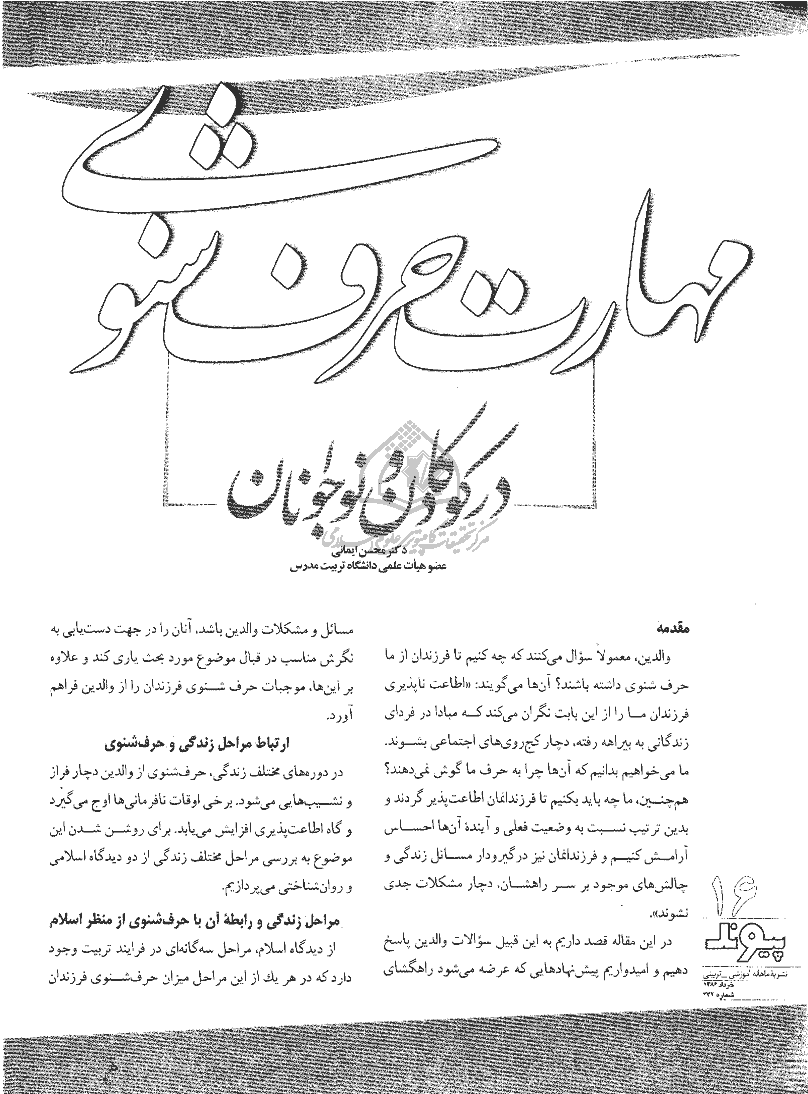 مهارت حرف شنوی
در کودکان و نوجوانان
مرکز تحقیقات کامپیوتری علوم اسلامی
دکتر محسن ایمانی
عضو هیأت علمی دانشگاه تربیت مدرس
مقدمه
والدین، معمولاً سؤال می‌کنند که چه کنیم تا فرزندان از ما
حرف شنوی داشته باشند؟ آن‌ها می‌گویند: «اطاعت ناپذیری
فرزندان مـا را از این بابت نگران می‌کند کـه مبادا در فردای
زندگانی به بیراهه رفته، دچار کج‌روی‌های اجتماعی بشـوند.
ما می‌خواهیم بدانیم که آن‌ها چرا به حرف ما گوش نمی‌دهند؟
هم‌چنـین، ما چه باید بکنیم تا فرزندانمان اطاعت‌پذیر گردند و
بدین ترتیب نسـبت به وضعیت فعلی و آیندهٔ آن‌ها احسـاس
آرامـش کنـیم و فرزندانمان نیز درگیرودار مسـائل زندگی و
چالش‌های موجود بر سـر راهشـان، دچار مشکلات جدی
نشوند».
در این مقاله قصد داریم به این قبیل سؤالات والدین پاسخ
دهیم و امیدواریم پیش‌نهادهایی که عرضه می‌شود راهگشای
مسائل و مشکلات والدین باشد، آنان را در جهت دست‌یابی به
نگرش مناسب در قبال موضوع مورد بحث یاری کند و علاوه
بر این‌ها، موجبات حرف شـنوی فرزندان را از والدین فراهم
آورد.
ارتباط مراحل زندگی و حرف‌شنوی
در دوره‌های مختلف زندگی، حرف‌شنوی از والدین دچار فراز
و نشـیب‌هایی می‌شود. برخی اوقات نافرمانی‌ها اوج می‌گیرد
و گاه اطاعت‌پذیری افزایش می‌یابد. برای روشـن شـدن این
موضوع به بررسی مراحل مختلف زندگی از دو دیدگاه اسلامی
و روان‌شناختی می‌پردازیم.
مراحل زندگی و رابطهٔ آن با حرف‌شنوی از منظر اسلام
از دیدگاه اسلام، مراحل سه‌گانه‌ای در فرایند تربیت وجود
دارد که در هر یك از این مراحل میزان حرف‌شـنوی فرزندان
۱۶
پیوند
نشریهٔ ماهانه آموزشی ـ تربیتی
خرداد ۱۳۸۶
شماره ۳۳۲